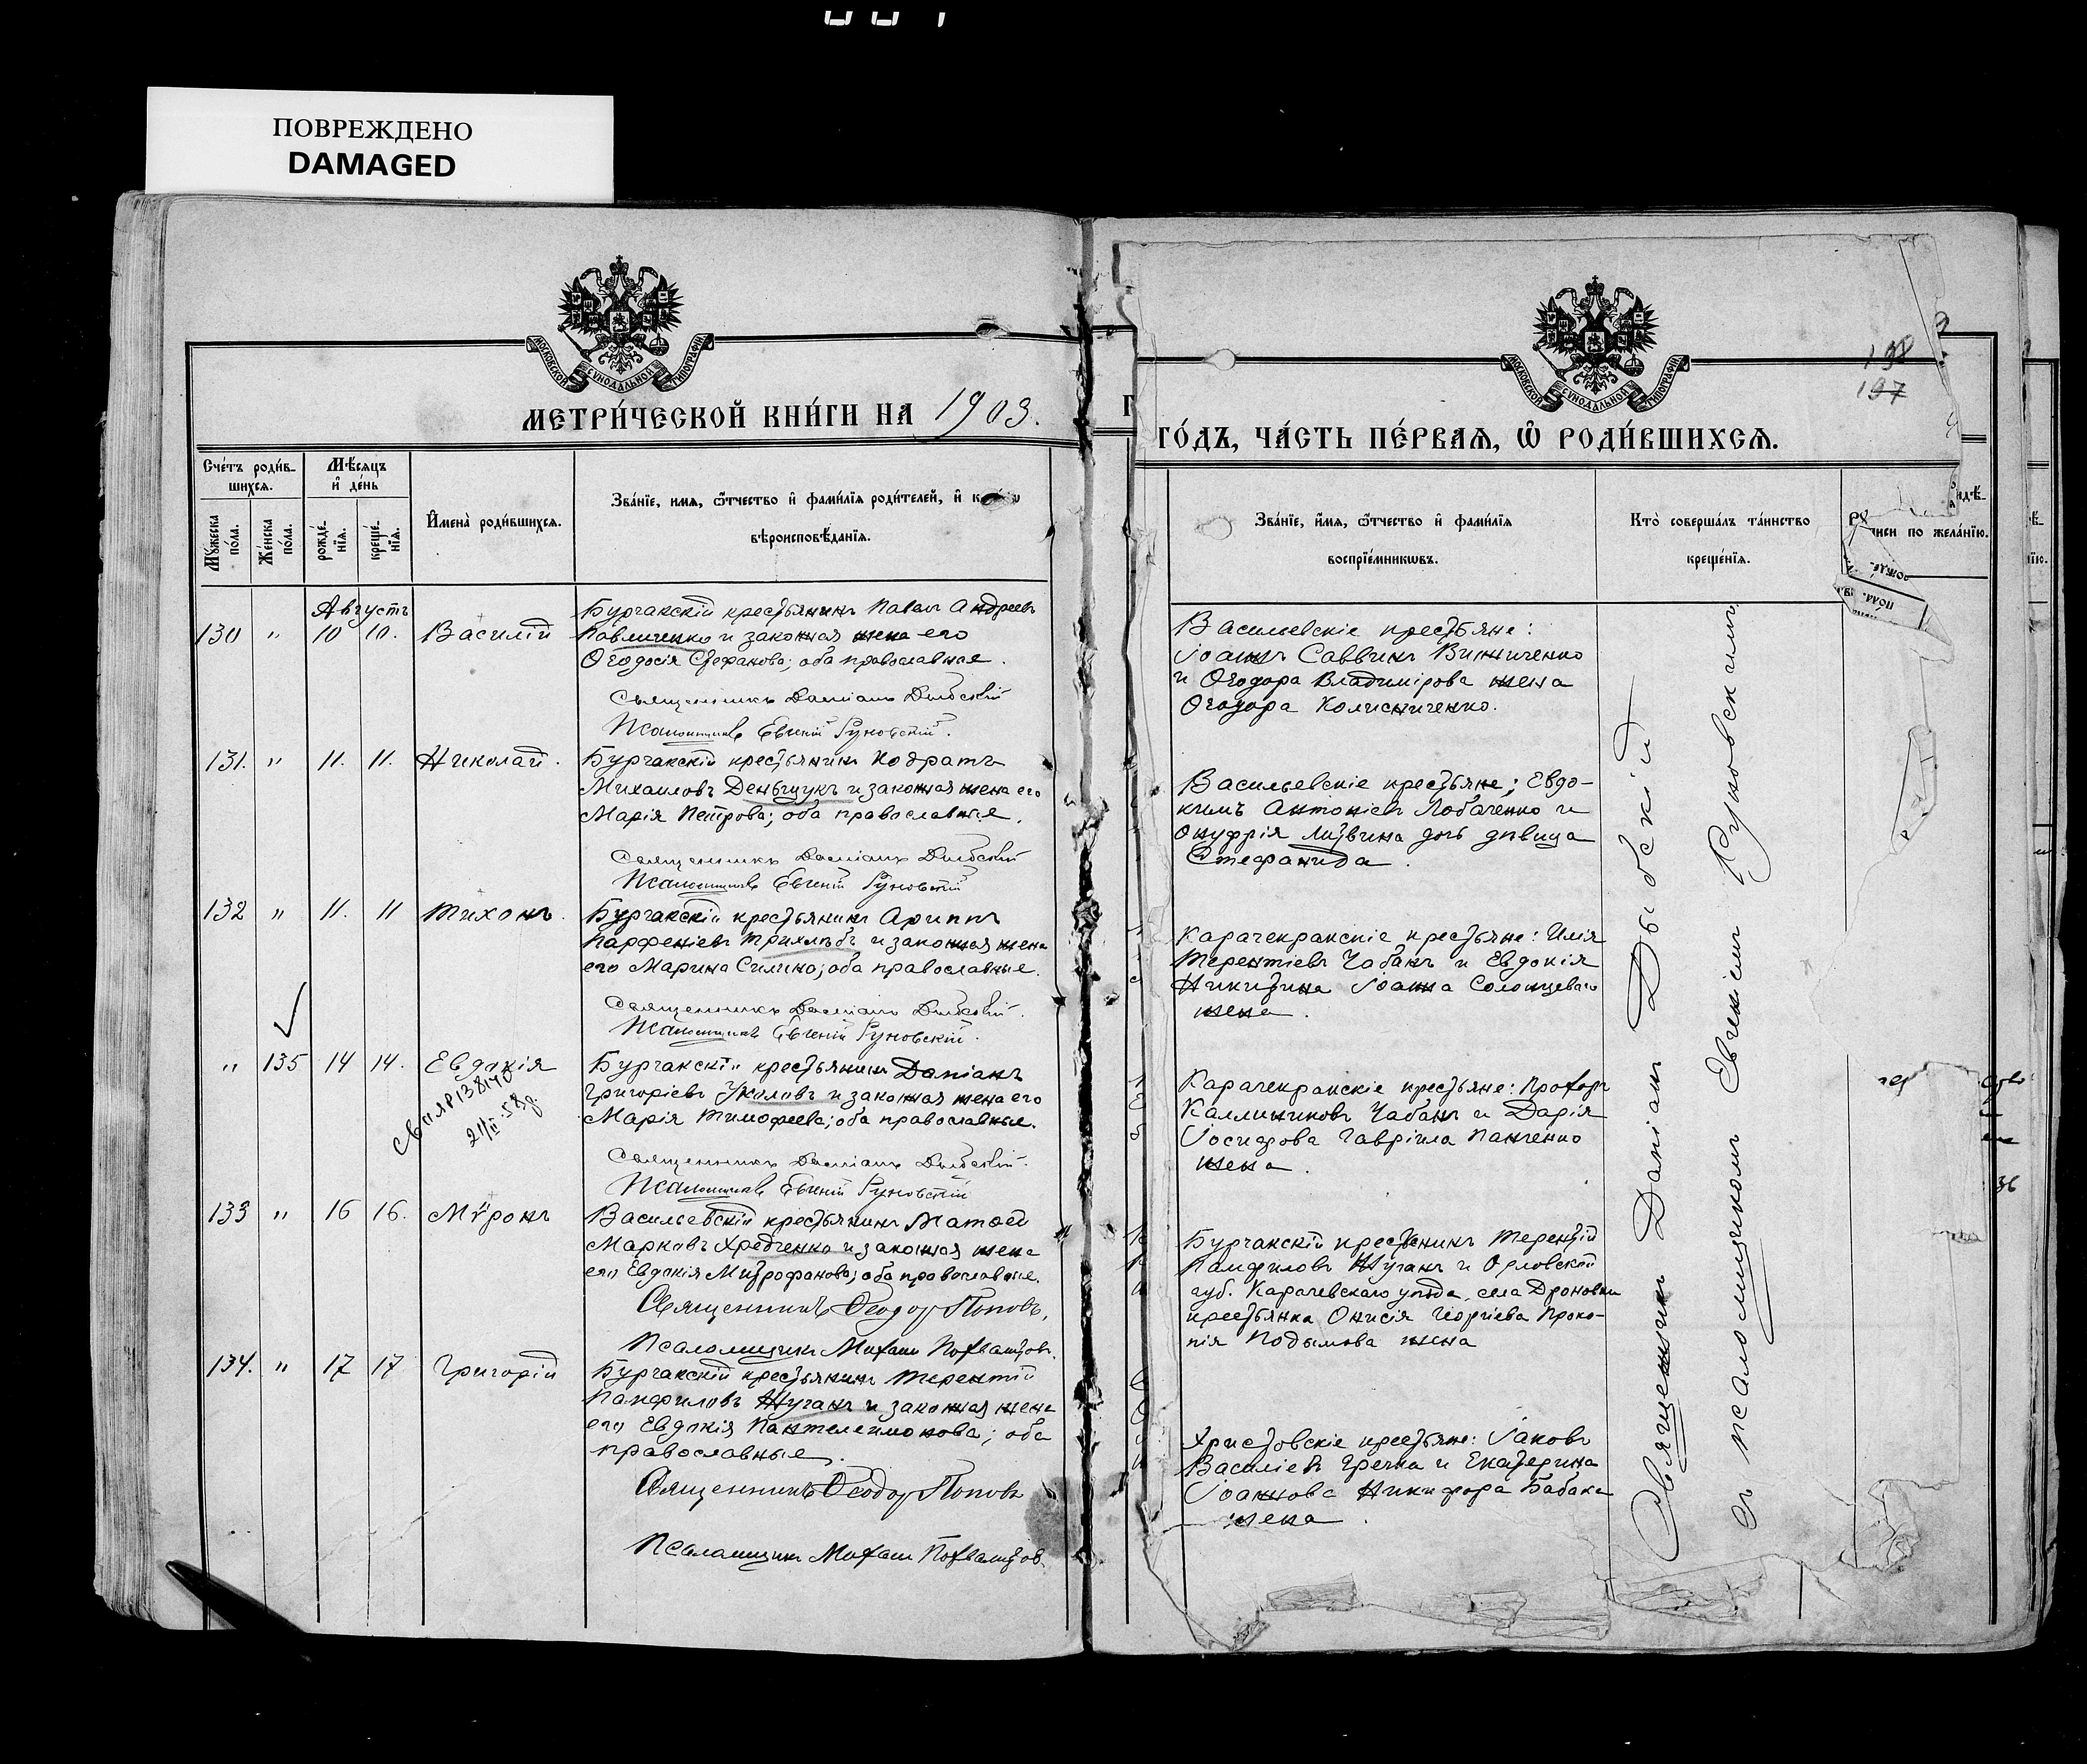 ПОВРЕЖДЕНО
DAMAGED
МОСКОВСКОЙ СѴНОДАЛЬНОЙ ТИПОГРАФІИ
МЕТРИ́ЧЕСКОЙ КНИ́ГИ НА 1903.
Сче́тъ роди́в-
шихся.
Мѣ́сяцъ
и҆ де́нь
Мꙋ́жеска
по́ла.
Же́нска
по́ла.
рожде́-
нїя.
креще́-
нїя.
И҆мена̀ роди́вшихся.
Зва́нїе, имя, ѻ҆́тчество и҆ фами́лїя роди́телей, и҆
вѣроисповѣ́данїя.
Августъ
130 " 10 10. Василій
Бурчакскій крестьянинъ Павелъ Андреевъ
Павличенко и законная жена его
Ѳеодосія Стефанова; оба православные.
Священникъ Даміанъ Дыбскій
Псаломщикъ Евгеній Руновскій.
131. " 11. 11. Николай.
Бурчакскій крестьянинъ Кодратъ
Михаиловъ Деньщукъ и законная жена его
Марія Петрова; оба православные.
Священникъ Даміанъ Дыбскій
Псаломщикъ Евгеній Руновскій
132 " 11. 11 Тихонъ.
Бурчакскій крестьянинъ Архипъ
Парфеніевъ Трихлѣбъ и законная жена
его Марина Силина; оба православные.
Священникъ Даміанъ Дыбскій.
Псаломщикъ Евгеній Руновскій.
" 135 14 14. Евдокія
21/II-58г.
Бурчакскій крестьянинъ Даміанъ
Григоріевъ Уколовъ и законная жена его
Марія Тимофеева; оба православные.
Священникъ Даміанъ Дыбскій.
Псаломщикъ Евгеній Руновскій
133 " 16 16. Мѵронъ
Васильевскій крестьянинъ Матѳей
Марковъ Хредченко и законная жена
его Евдокія Митрофанова; оба православные.
Священникъ Ѳеодоръ Поповъ.
Псаломщикъ Михаилъ Похвалитовъ.
134. " 17 17 Григорій
Бурчакскій крестьянинъ Терентій
Панфиловъ Жуганъ и законная жена
его Евдокія Пантелеимонова; оба
православные.
Священникъ Ѳеодоръ Поповъ
Псаломщикъ Михаилъ Похвалитовъ.
МОСКОВСКОЙ СѴНОДАЛЬНОЙ ТИПОГРАФІИ
198
197
ГО́ДЪ, ЧА́СТЬ ПЕ́РВАЯ, Ѽ РОДИ́ВШИХСЯ.
Зва́нїе, и҆́мя, ѻ҆́тчество и҆ фами́лїя
воспрїе́мникѡвъ.
Кто̀ соверша́лъ та́инство
креще́нїя.
по жела́нїю.
Васильевскіе крестьяне:
Іоаннъ Саввинъ Винниченко
и Ѳеодора Владимірова жена
Ѳеодора Колисниченко.
Васильевскіе крестьяне; Евдо-
кимъ Антоніевъ Лобаченко и
Онуфрія Литвина дочь дѣвица
Стефанида.
Карачекракскіе крестьяне: Илія
Терентіевъ Чабанъ и Евдокія
Никитина Іоанна Солонцеваго
жена.
Карачекракскіе крестьяне: Прохоръ
Каллиниковъ Чабанъ и Дарія
Іосифова Гавріила Панченко
жена.
Бурчакскій крестьянинъ Терентій
Памфиловъ Жуганъ и Орловской
губ. Карачевскаго уѣзда, села Дроновки
крестьянка Онисія Георгіева Проко-
пія Подымова жена
Христовскіе крестьяне: Іаковъ
Василіевъ Гречка и Екатерина
Іоаннова Никифора Бабака
жена.
Священникъ Даніанъ Дыбскій
съ псаломщикомъ Евгеніемъ Руновскимъ